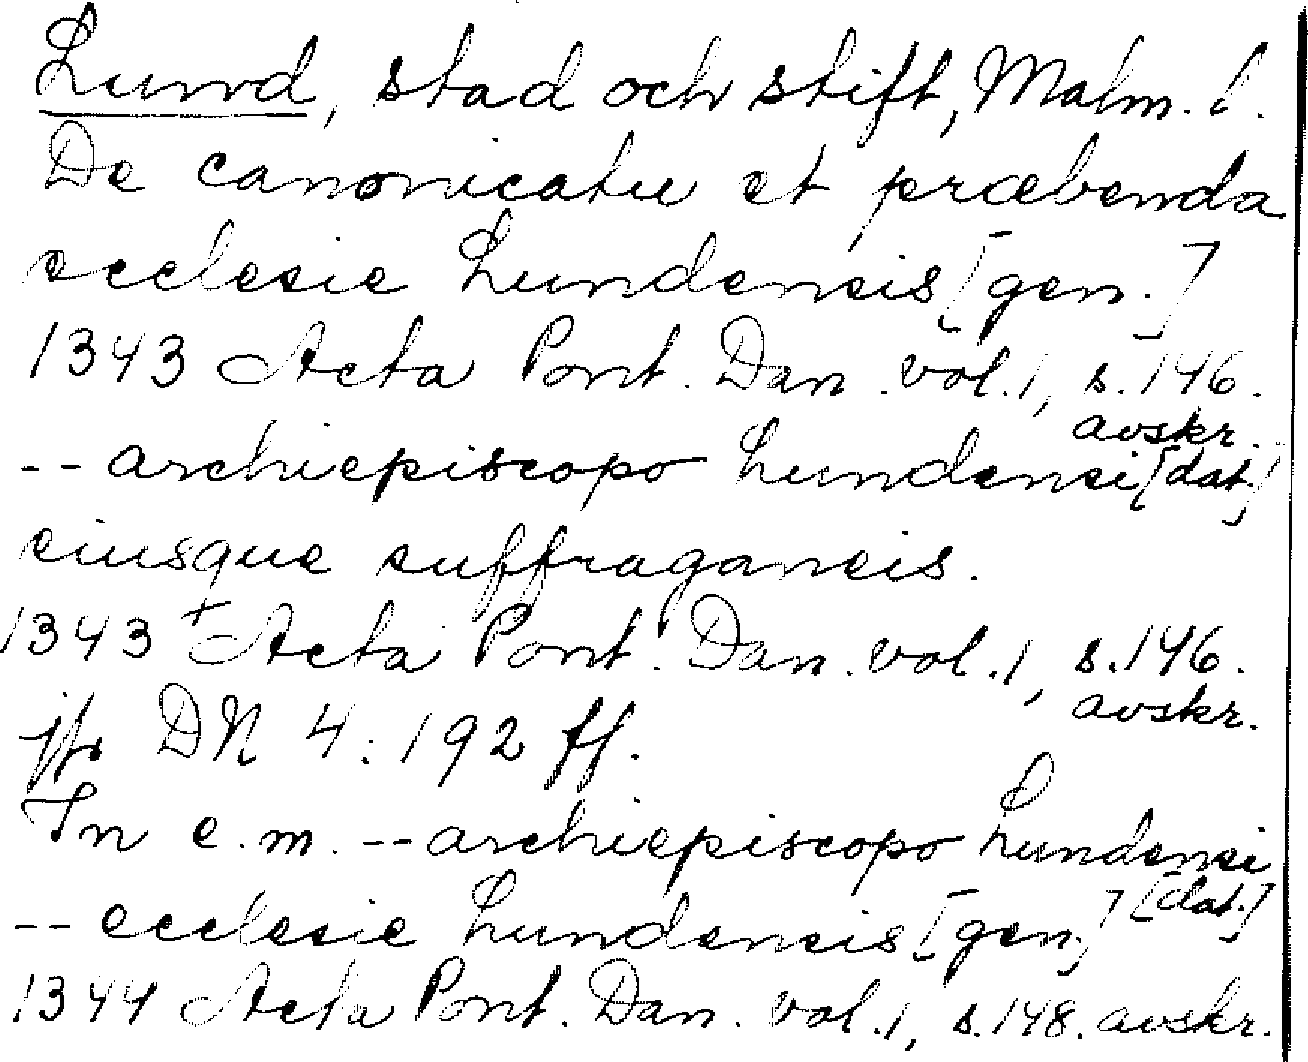 Lund, stad och stift, Malm. l.
De canonicatu et præbenda
ecclesie Lundensis [gen.]
1343 Acta Pont. Dan. vol. 1, s. 146.
avskr.
-- archiepiscopo Lundensi [dat.]
eiusque suffraganeis.
1343 + Acta Pont. Dan. vol. 1, s. 146.
avskr.
jfr DN 4: 192 ff.
In e. m. -- archiepiscopo Lundensi
[dat.]
-- ecclesie Lundensis [gen.]
1344 Acta Pont. Dan. vol. 1, s. 148. avskr.